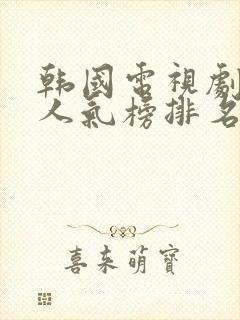 韩國電視劇
人氣榜排名
喜来萌寶